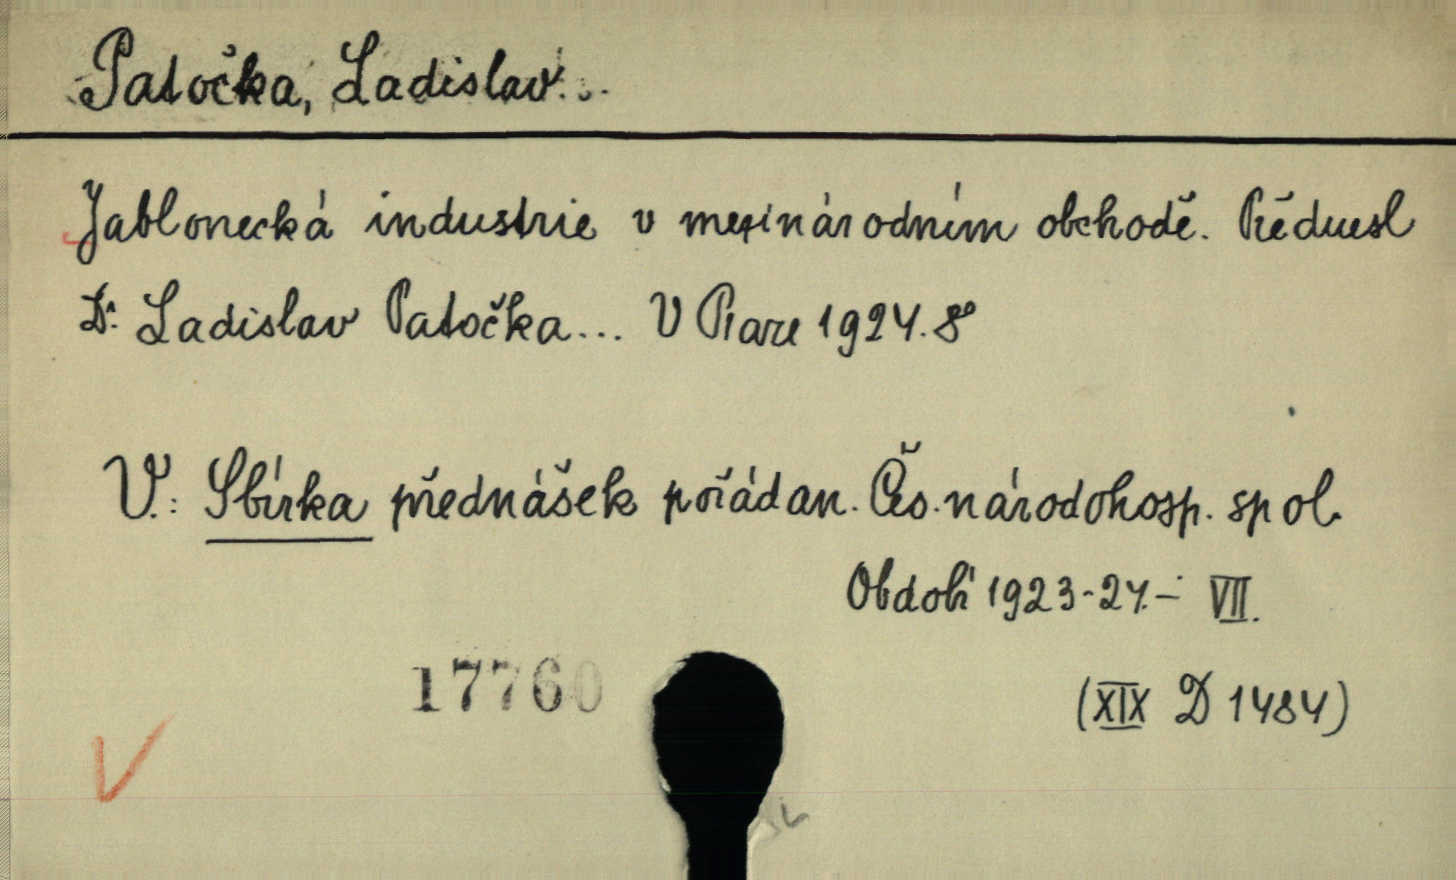 Patočka, Ladislav...
Jablonecká industrie v mezinárodním obchodě. Přednesl
Dr. Ladislav Patočka... V Praze 1924. 8°
V.: Sbírka přednášek pořádan. Čes. národohosp. spol.
Období 1923-24. - VII.
17760
(XIX D 1484)